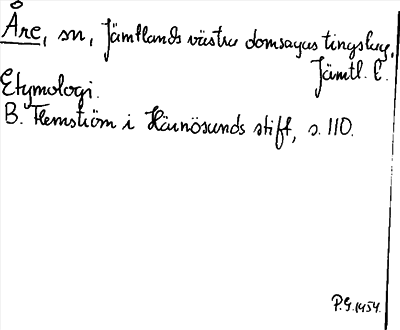 Åre, sn, Jämtlands västra domsagas tingslag,
Jämtl. l.
Etymologi.
B. Flemström i Härnösands stift, s. 110.
P.G. 1954.